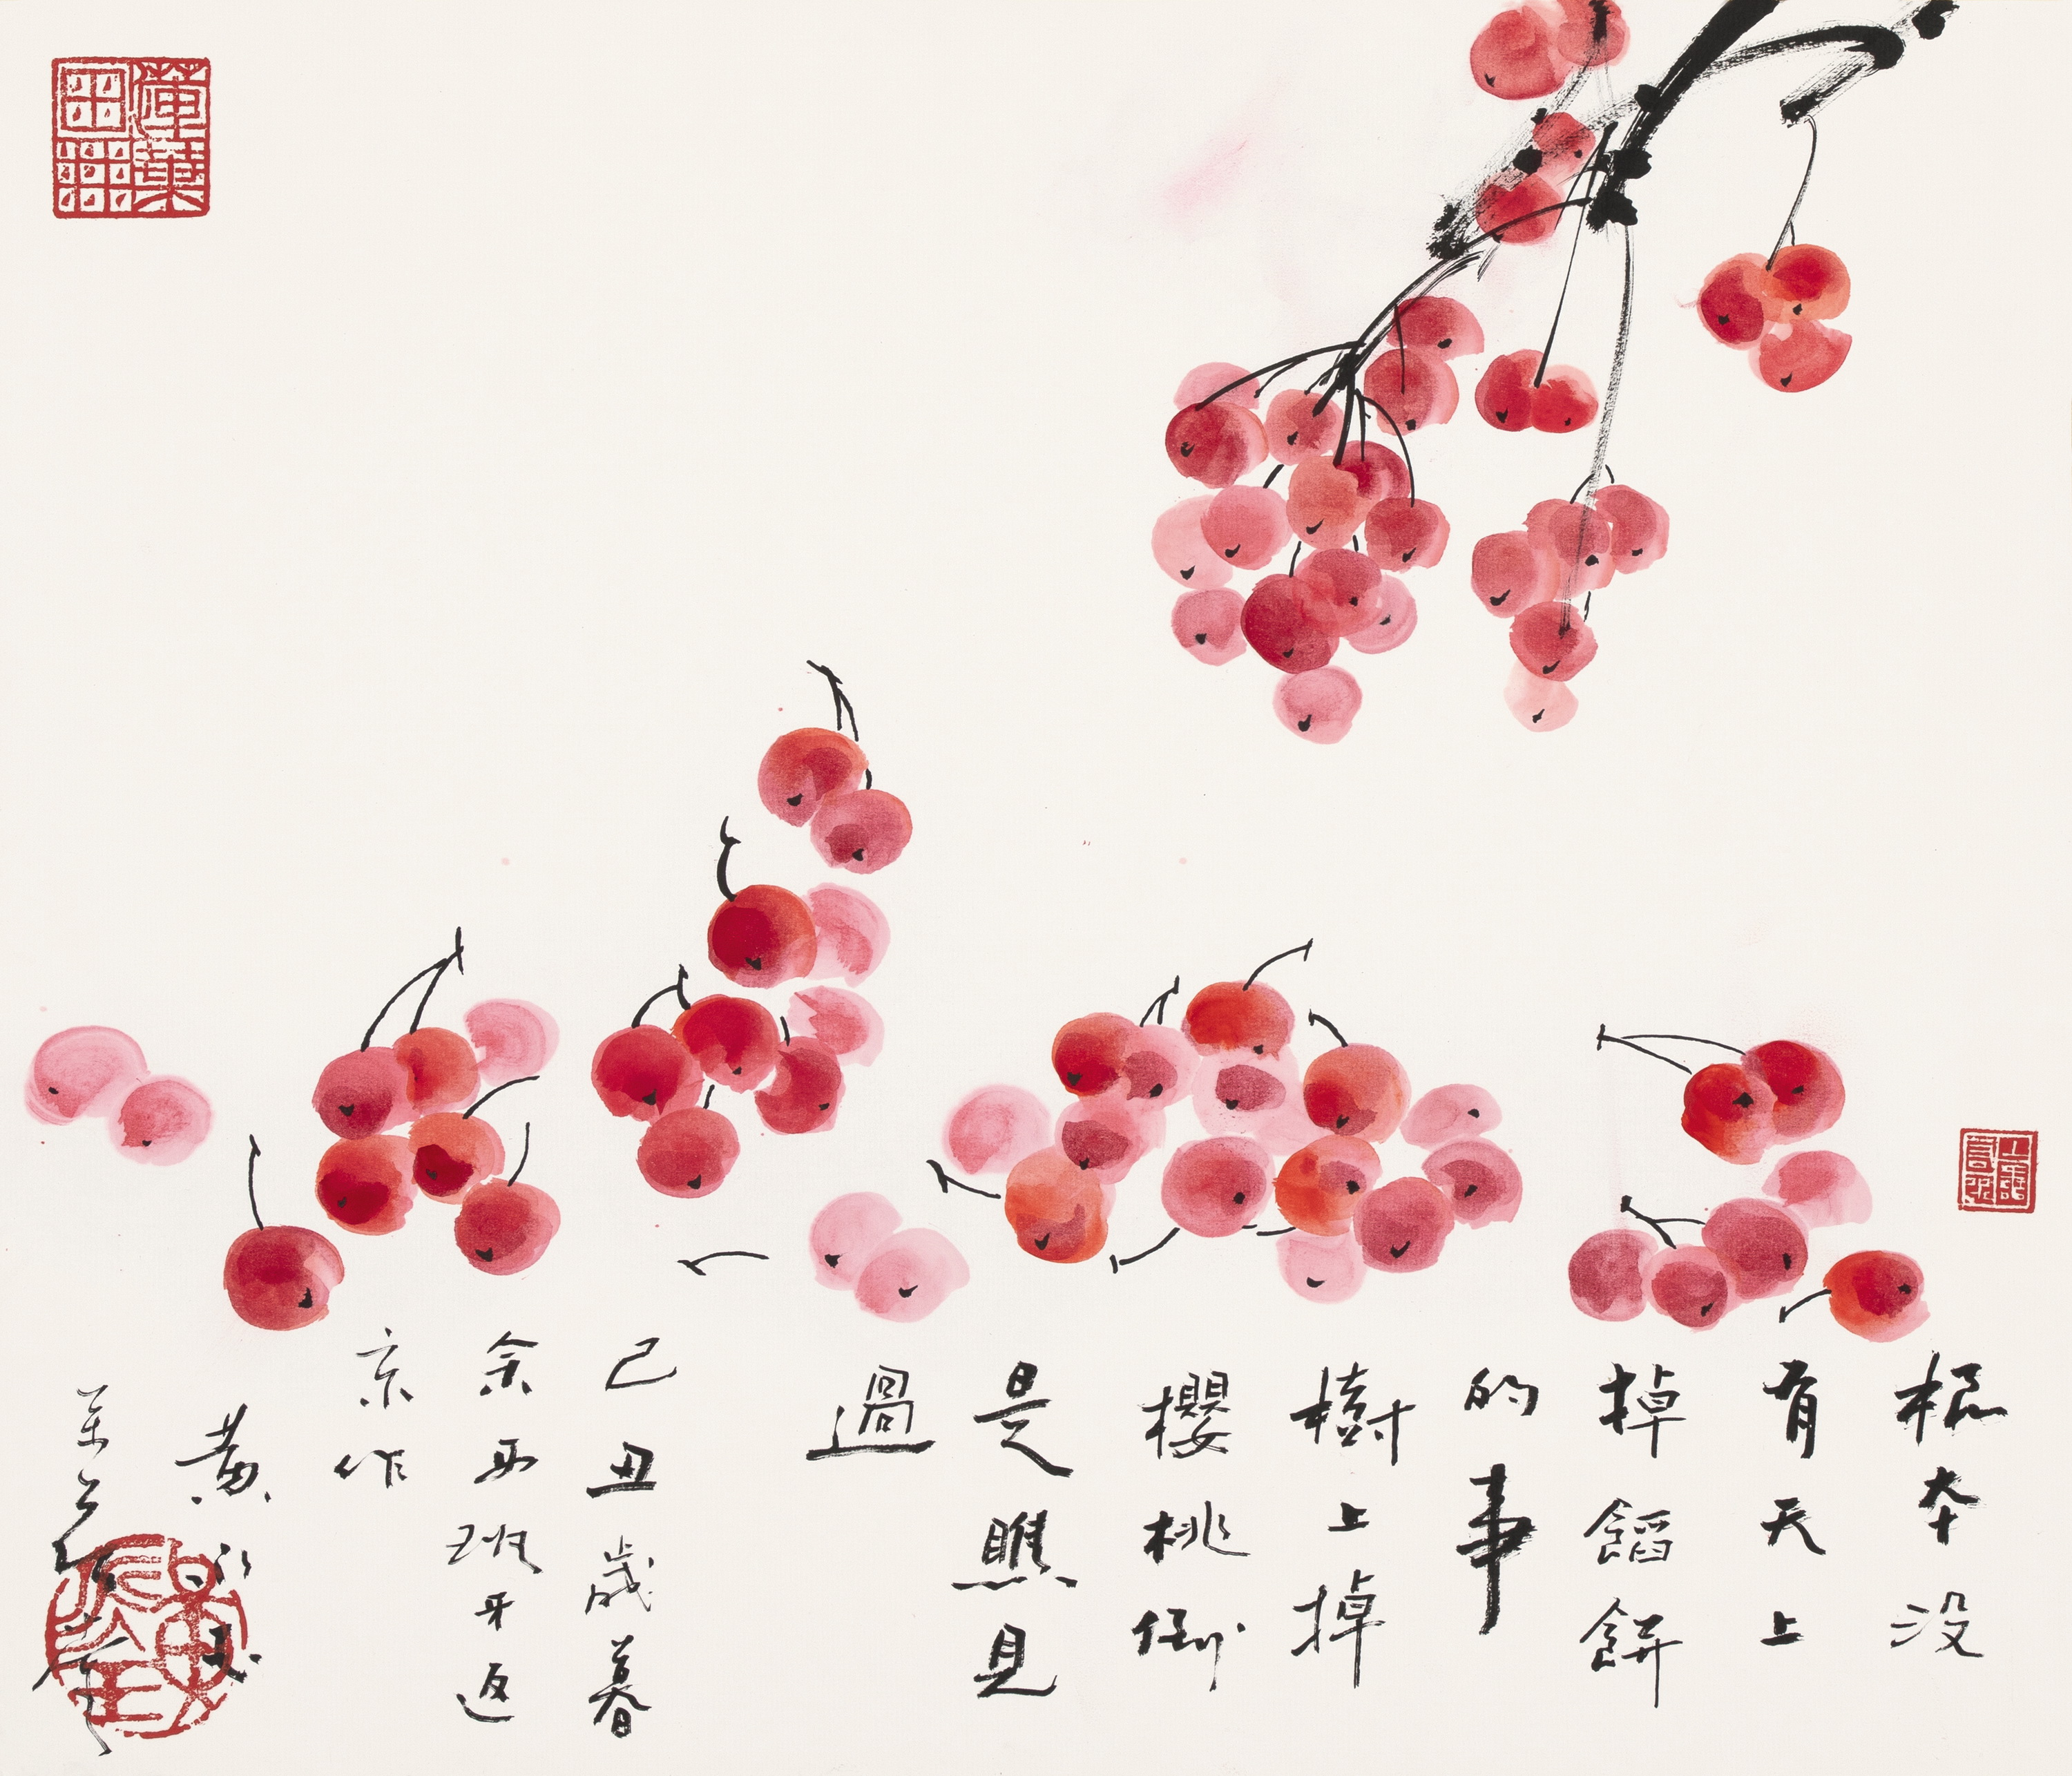 根本没
有天上
掉餡餅
的事
樹上掉
櫻桃倒
是瞧見
過
己丑歲暮
余西班牙返
京作
黃永玉